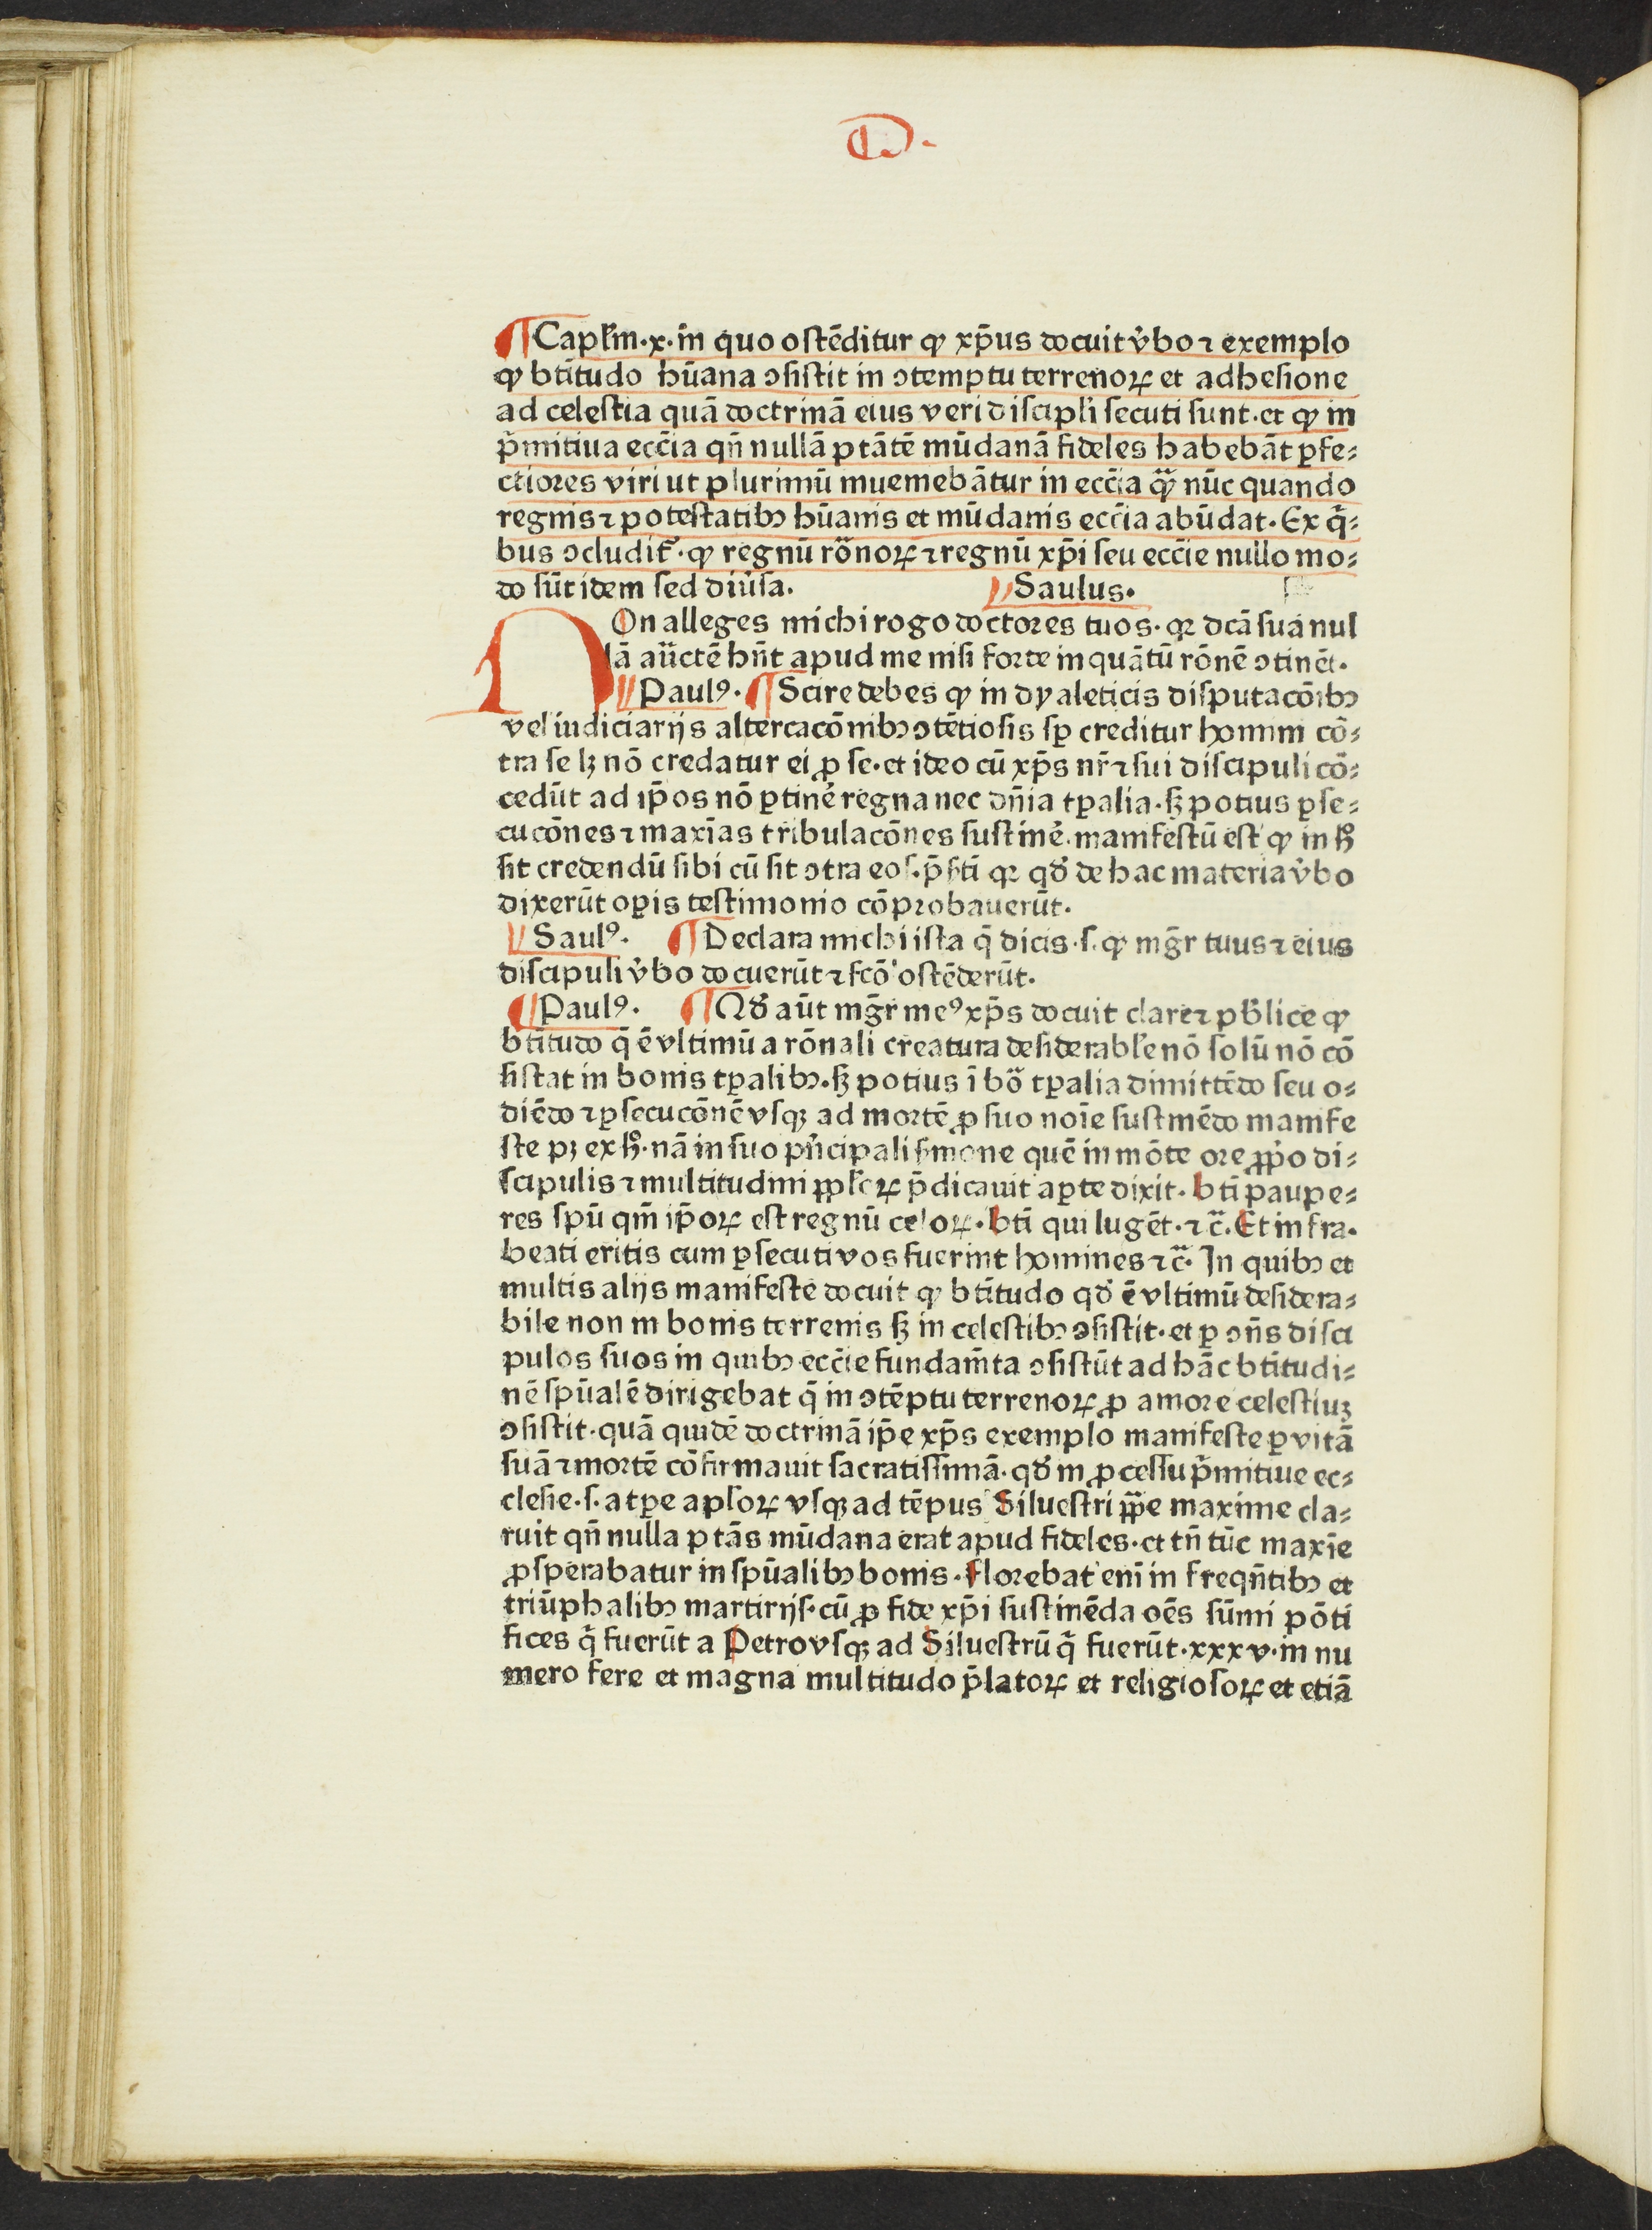 D.
¶Capľm·x·in quo ostēditur ꝙ xp̄us docuit v̓bo ⁊ exemplo
ꝙ btītudo hūana ꝯsistit in ꝯtemptu terrenoꝝ et adhesione
ad celestia quā doctrinā eius veri discipľi secuti sunt·et ꝙ in
p̄mitiua ecc̄ia qn̄ nullā ptātē mūdanā fideles habebāt ꝑfe⸗
ctiores viri ut plurimū inueniebātur in ecc̄ia ꝙ̄ nūc quando
regnis ⁊ potestatibꝫ hūanis et mūdanis ecc̄ia abūdat. Ex q̄⸗
bus ꝯcludit᷑·ꝙ regnū rōnoꝝ ⁊ regnū xp̄i seu ecc̄ie nullo mo⸗
do sūt idem sed diūsa. Saulus.
NOn alleges michi rogo doctores tuos·qꝛ dcā suā nul
lā aūctē hn̄t apud me nisi forte inquātū rōnē ꝯtinēt.
Paulꝰ. ¶Scire debes ꝙ in dyaleticis disputacōibꝫ
vel iudiciarijs altercacōnibꝫ ꝯtētiosis sꝑ creditur homini cō⸗
tra se lꝫ nō credatur ei ꝓ se·et ideo cū xp̄s nr̄ ⁊ sui discipuli cō⸗
cedūt ad ip̄os nō ꝑtinē regna nec dn̄ia tꝑalia·sꝫ potius ꝑse⸗
cucōnes ⁊ maxīas tribulacōnes sustinē·manifestū est ꝙ in h̄
sit credendū sibi cū sit ꝯtra eos·p̄s̄ti qꝛ qď de hac materia v̓bo
dixerūt oꝑis testimonio cōprobauerūt.
Saulꝰ. ¶Declara michi ista q̄ dicis·s·ꝙ mḡr tuus ⁊ eius
discipuli v̓bo docuerūt ⁊ fcō ostēderūt.
¶Paulꝰ. ¶Qď aūt mḡr meꝰ xp̄s docuit clare ⁊ pb̄lice ꝙ
btītudo q̄ ē vltimū a rōnali creatura desiderabľe nō solū nō cō
sistat in bonis tꝑalibꝫ·sꝫ potius ī bō tꝑalia dimittēdo seu o⸗
diēdo ⁊ ꝑsecucōnē vsqꝫ ad mortē ꝓ suo noīe sustinēdo manife
ste pꝫ ex h̄·nā in suo pn̄cipali s̄mone quē in mōte ore ꝓp̓o di⸗
scipulis ⁊ multitudini ppľoꝝ p̄dicauit aꝑte dixit·btī paupe⸗
res spū qm̄ ip̄oꝝ est regnū celoꝝ·btī qui lugēt·⁊ c̄. Et infra·
beati eritis cum ꝑsecuti vos fuerint homines ⁊ c̄· In quibꝫ et
multis alijs manifeste docuit ꝙ btītudo qď ē vltimū desidera⸗
bile non in bonis terrenis sꝫ in celestibꝫ ꝯsistit·et ꝑ ꝯn̄s disci
pulos suos in quibꝫ ecc̄ie fundam̄ta ꝯsistūt ad hāc btītudi⸗
nē spūalē dirigebat q̄ in ꝯtēptu terrenoꝝ ꝓ amore celestiuꝫ
ꝯsistit·quā quidē doctrinā ip̄e xp̄s exemplo manifeste ꝑ vitā
suā ⁊ mortē cōfirmauit sacratissimā·qď in ꝓcessu p̄mitiue ec⸗
clesie·s·a tꝑe apľoꝝ vsqꝫ ad tēpus Siluestri pp̄e maxime cla⸗
ruit qn̄ nulla ptās mūdana erat apud fideles·et tn̄ tūc maxīe
ꝓsperabatur in spūalibꝫ bonis·Florebat enī in freqn̄tibꝫ et
triūphalibꝫ martirijs·cū ꝓ fide xp̄i sustinēda oēs sūmi pōti
fices q̄ fuerūt a Petro vsqꝫ ad Siluestrū q̄ fuerūt·xxxv·in nu
mero fere et magna multitudo p̄latoꝝ et religiosoꝝ et etiā